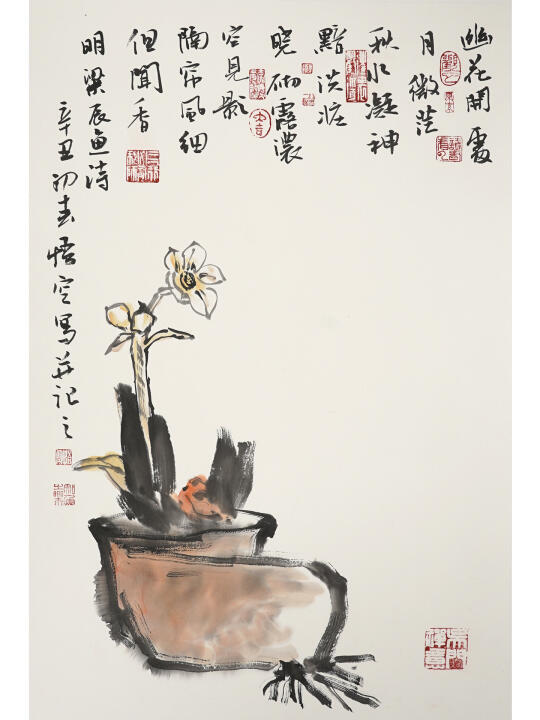 幽花開處
月微茫
秋水凝神
黯淡妝
晓砌露濃
空見影
隔帘風细
但聞香
明梁辰魚詩
辛丑初春悟空寫并記之
吳門
禪意